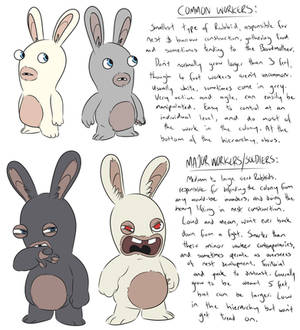 COMMON WORKERS:
Smallest type of Rabbid, responsible for
nest & burrow construction, gathering food
and sometimes tending to the Broodmother.
Don't normally grow larger than 3 feet,
though 4 foot workers aren't uncommon.
Usually white, sometimes come in grey.
Very active and agile, can easily be
manipulated. Easy to control at an
individual level, and do most of
the work in the colony. At the
bottom of the hierarchy, obvs.
MAJOR WORKERS/SOLDIERS:
Medium to large sized Rabbids,
responsible for defending the colony from
any would-be invaders, and doing the
heavy lifting in nest construction.
Loud and mean, won't ever back
down from a fight. Smarter than
their minor worker contemporaries,
and sometimes operate as overseers
of nest development. Territorial
and quick to distrust. Generally
grow to be about 5 feet,
but can be larger. Lower
in the hierarchy but won't
get tread on.